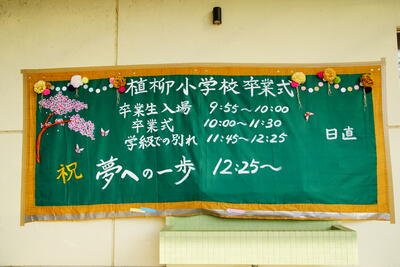 植柳小学校 卒業式
卒業生入場 9:55~10:00
卒業式 10:00~11:30
学級での別れ 11:45~12:25
日直
祝 夢への一歩 12:25~